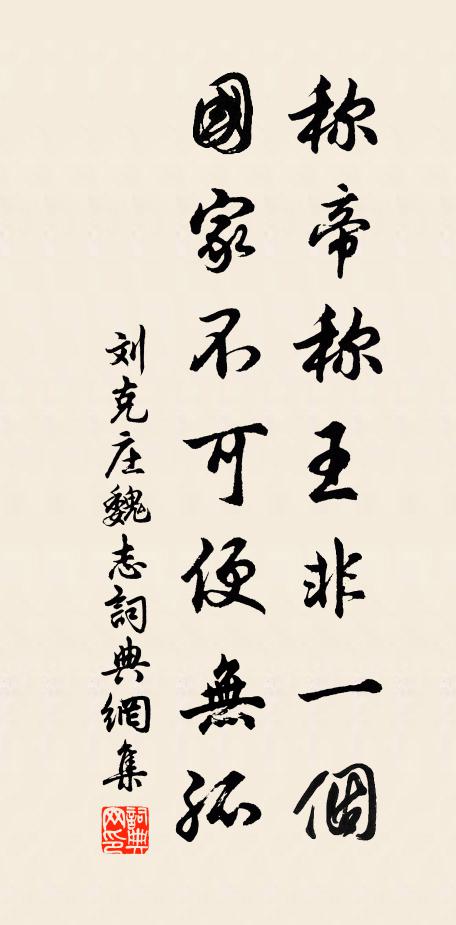 称帝称王非一個
國家不可便無孤
刘克庄魏志詞典網集
詞典网印